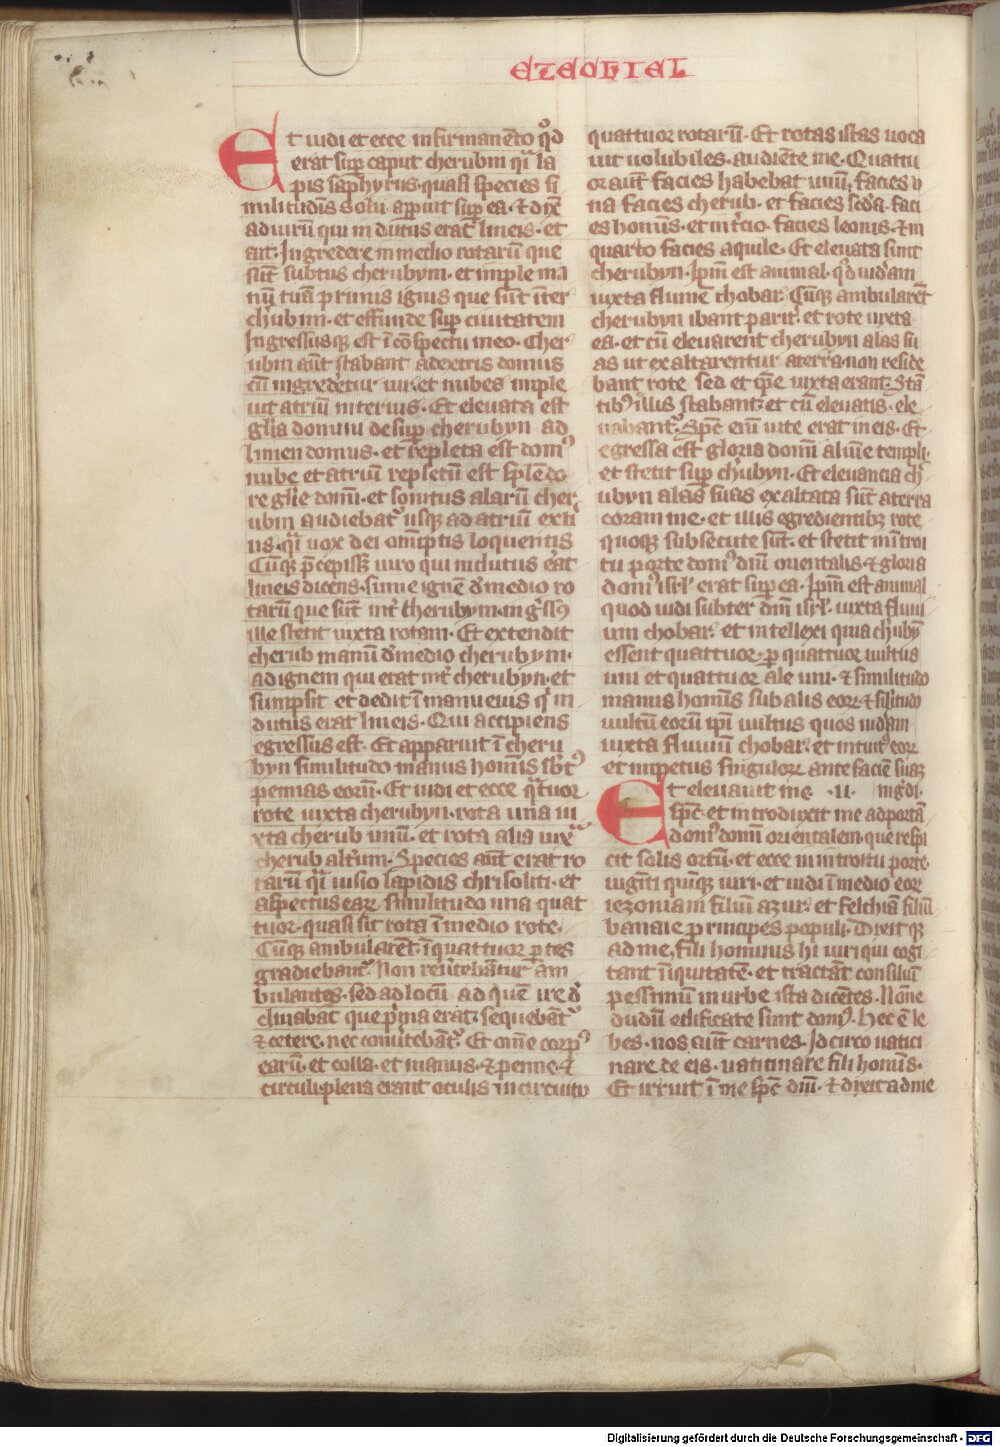 EZECHIEL
Et uidi et ecce in firmam̄eto qͦd
erat suꝑ caput cherubin qͣi la
pis saphyrus. quasi species si
militudinis solii apparuit suꝑ ea. ⁊ dix̄
ad uirū qui indutus erat lineis. et
ait. Ingredere in medio rotarum que
sūt subtus cherubym. et imple ma
nū tuā prunis ignis que sūt inter
cħubim. et effunde suꝑ ciuitatem
Ingressusqꝫ est ī cōspectu meo. Cher
ubin aūt stabant adextris domus
cū ingrederetur uir. et nubes imple
uit atriū interius. Et eleuata est
glīa domini desuꝑ cherubyn ad
limen domus. et repleta est domꝰ
nube et atrium repletū est splendo
re glīe domī. et sonitus alarū cher
ubin audiebatᷣ usqꝫ ad atriū exti
us. qͣi uox dei omīptis loquentis
Cūqꝫ p̄cepissꝫ uiro qui indutus erat
lineis dicens. sume ignē de medio ro
tarū que sūt int̄ cherubym. ingssꝰ
ille stetit iuxta rotam. Et extendit
cherub manū de medio cherubym.
ad ignem qui erat int̄ cherubyn. et
sumpsit et dedit ī manu eius qͥ in
dutus erat lineis. Qui accipiens
egressus est. Et apparuit ī cheru
byn similitudo manus hominis sbtꝰ
pennas eorū. Et uidi et ecce qͣtuor
rote iuxta cherubyn. rota una iu
xta cherub unū. et rota alia iuxͭᵃ
cherub altͥum. Species aūt erat ro
tarū qͣi uisio lapidis chrisoliti. et
aspectus earꝝ similitudo una quat
tuor. quasi sit rota ī medio rote.
Cūqꝫ ambularēt. ī quattuor ꝑtes
gradiebantᷣ. Non reuertebātur am
bulantes. sed ad locū ad quē ire de
clinabat que pͥma erat. sequebātᷣ
⁊ cetere. nec conūtebātᷣ. Et omne corpꝰ
earū. et colla. et manus. ⁊ penne. ⁊
circuli. plena erant oculis in circuitu
quattuor rotarū. Et rotas istas uoca
uit uolubiles. audiēte me. Quattu
or aūt facies habebat unū, facies u
na facies cherub. et facies sedā. faci
es hominis. et in tͥcio facies leonis. ⁊ in
quarto facies aquile. Et eleuata sunt
cherubyn. Ipm̄ est animal. qͦd uideram
iuxta flumē chobar. Cūqꝫ ambularēt
cherubyn ibant pariť. et rote iuxta
ea. et cū eleuarent cherubyn alas su
as ut exaltarentur aterra. non reside
bant rote sed et ip̄e iuxta erant. Stā
tibꝰ illis stabant. et cū eleuatis. ele
uabantᷣ. Spc̄ enī uite erat in eis. Et
egressa est gloria domī alimīe templi.
et stetit suꝑ cħubyn. Et eleuancia cħ
ubyn alas suas exaltata sūt aterra
coram me. et illis egredientibꝫ rote
quoqꝫ subsecute sūt. et stetit in introi
tu porte domꝰ dnī orientalis. ⁊ gloria
domꝰ isrl̄ erat suꝑ ea. Ipm̄ est animal
quod uidi subter dm̄ isrl̄. iuxta fluui
um chobar. et intellexi quia cħubyn
essent quattuor. ꝑ quattuor uultus
uni et quattuor ale uni. ⁊ similitudo
manus hominis sub alis eorꝝ. ⁊ silitudo
uultū eorū ipī uultus quos uideram
iuxta fluuiū chobar. et intuitꝰ eorꝝ
et impetus singulorꝝ ante faciē suaꝫ
Et eleuauit me
spc̄. et introduxit me ad portā
domꝰ domī orientalem. que respi
cit solis ortū. et ecce in introitu porte.
uiginti quinqꝫ uiri. et uidi ī medio eorꝝ
iezoniam filiū azur. et felchiā filiū
banaie principes populi. Dixit qꝫ
ad me, fili hominis hi uiri qui cogi
tant īiquitatē. et tractāt consiliū
pessimū in urbe ista dicētes. Nōne
dudū edificate sunt domꝰ. Hec ē le
bes. nos aūt carnes. Idcirco uatici
nare de eis. uaticinare fili hominis.
Et irruit ī me spc̄ dnī. ⁊ dixit ad me
Digitalisierung gefördert durch die Deutsche Forschungsgemeinschaft - DFG